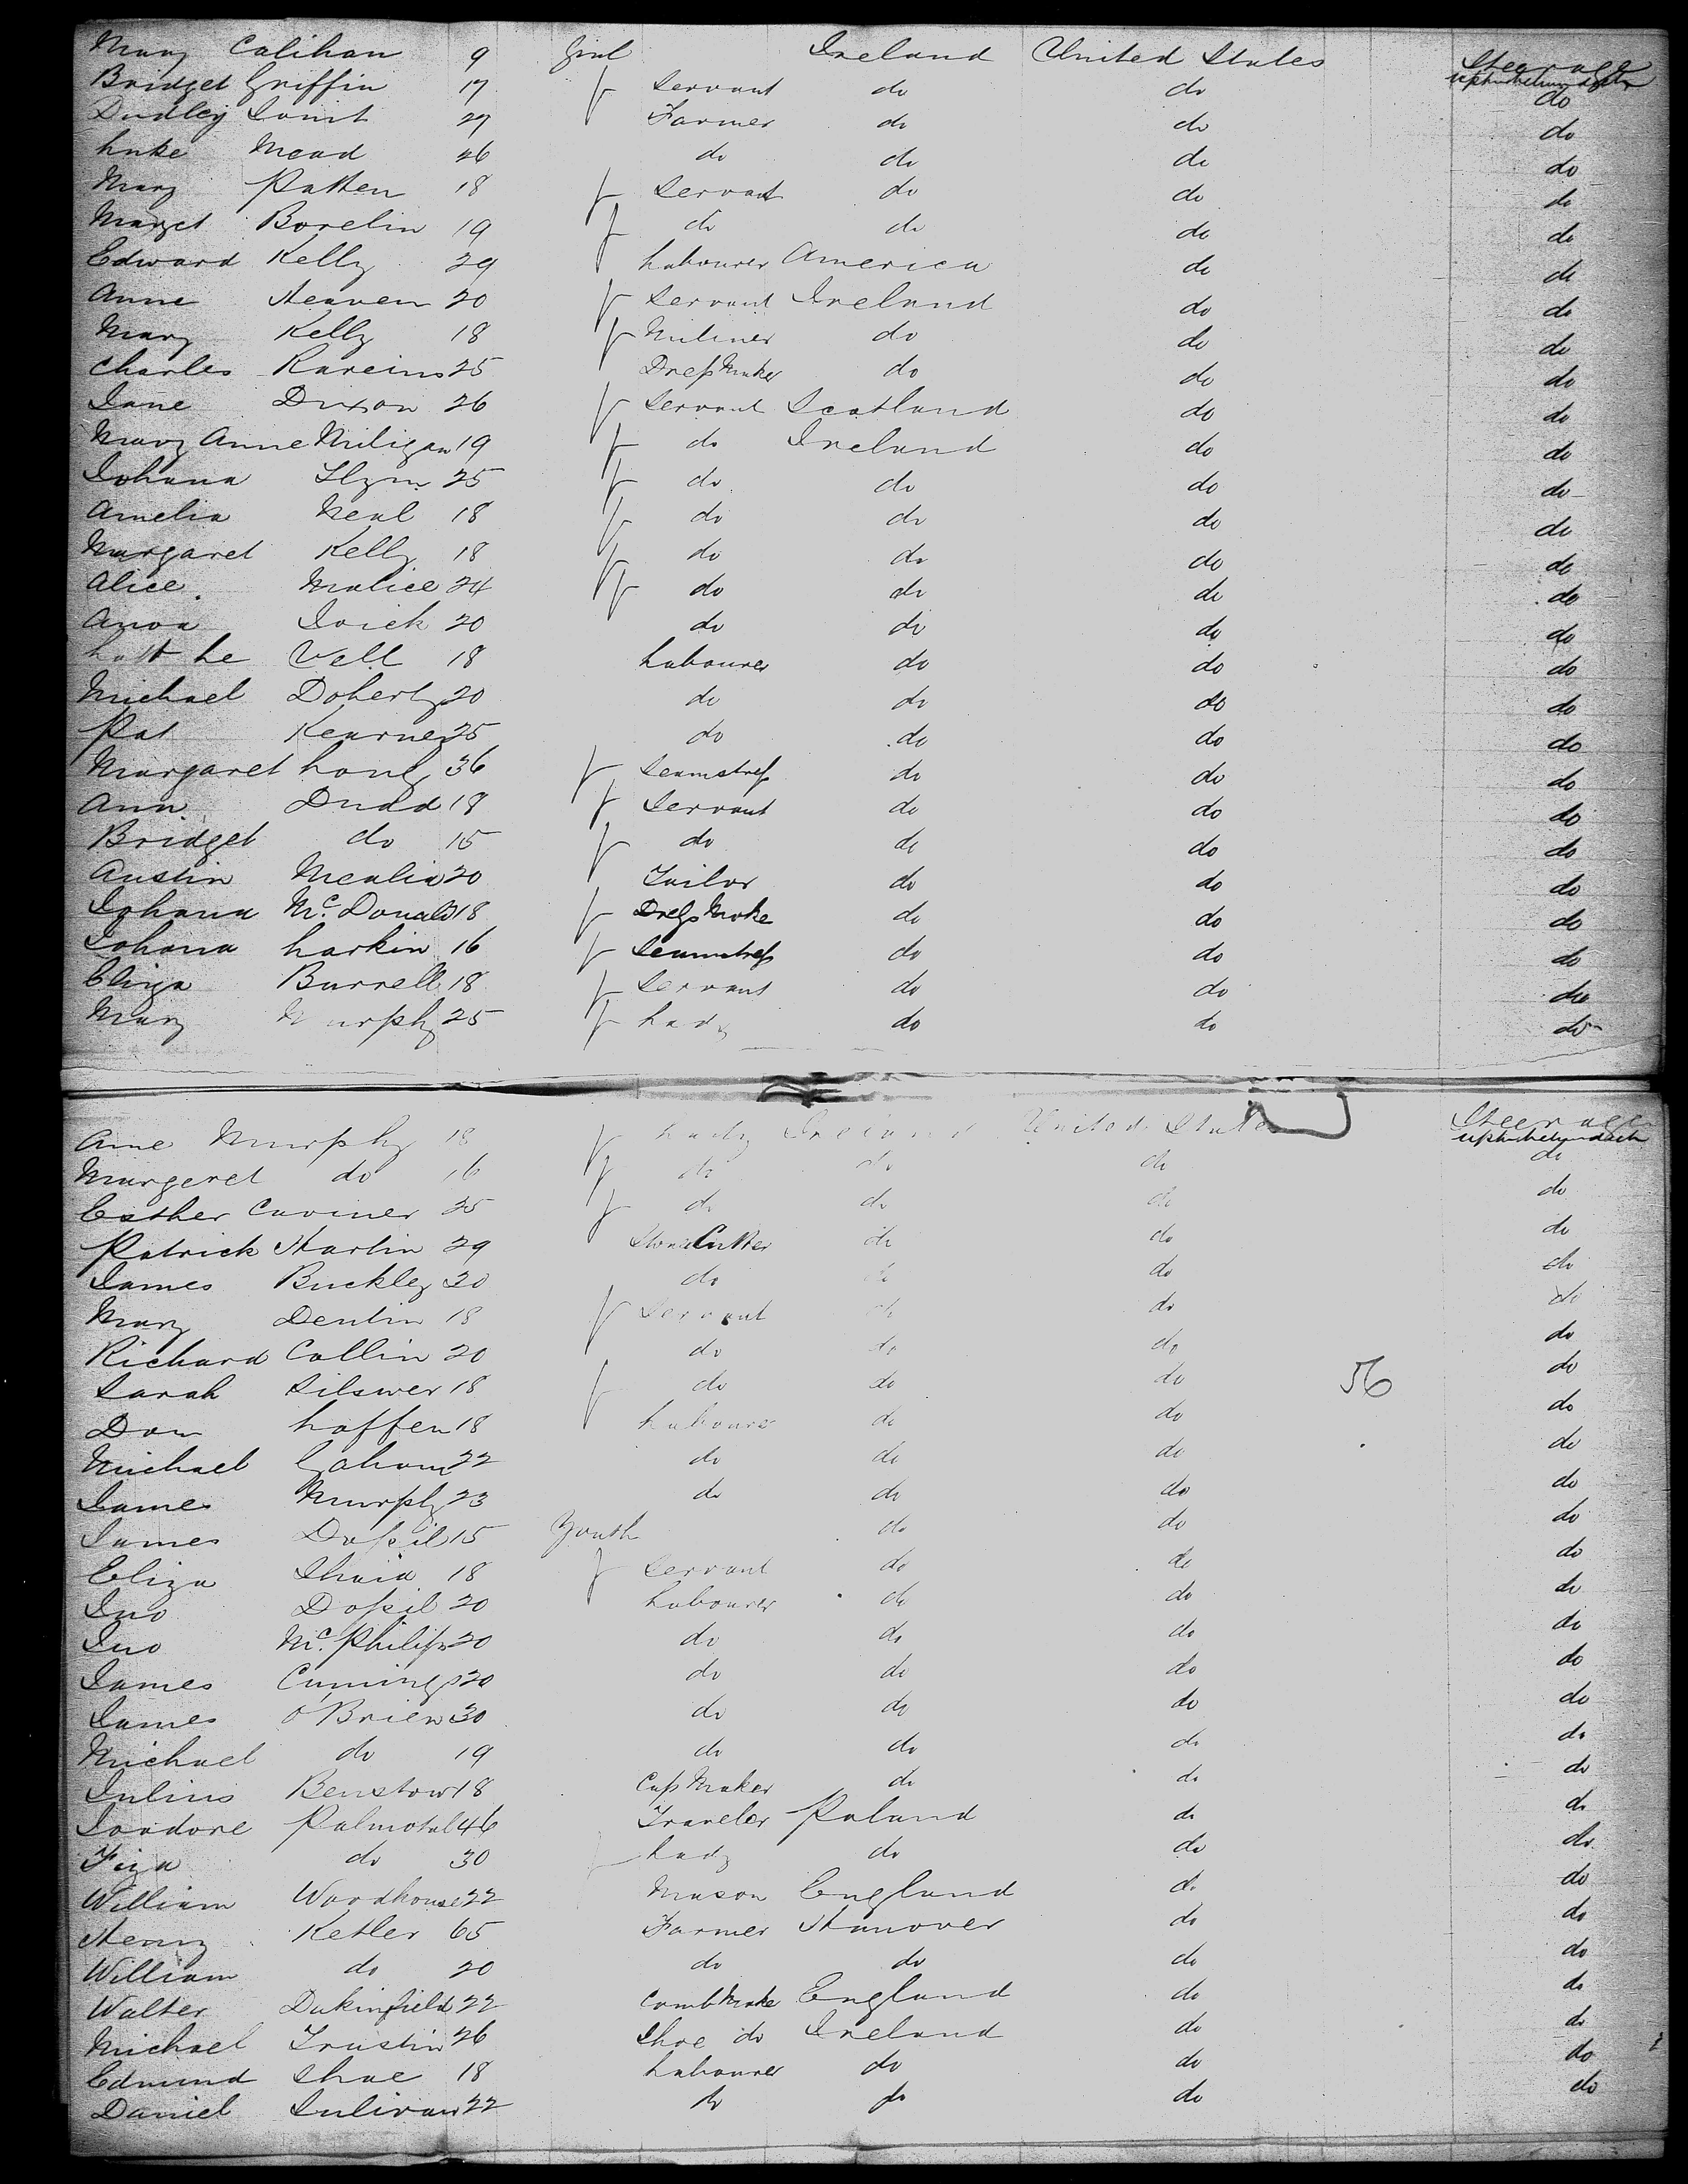 Mary Calihan 9 Girl Ireland United States Steerage
Bridget Griffin 17 f Servant do do do
Dudley 27 Farmer do do do
Luke Mead 26 do do do do
Mary Patten 18 f Servant do do do
Marget Borelin 19 f do do do do
Edward Kelly 29 Labourer America do do
Anne Heaven 20 f Servant Ireland do do
Mary Kelly 18 f Miliner do do do
Charles 25 Dress Maker do do do
Jane Dixon 26 f Servant Scotland do do
Mary Anne Miligan 19 f do Ireland do do
Johana 25 f do do do do
Amelia Neal 18 f do do do do
Margaret Kelly 18 f do do do do
Alice Malice 24 f do do do do
Anna 20 do do do do
Vell 18 Labourer do do do
Michael Doherty 20 do do do do
Pat Kearney 25 do do do do
Margaret Long 36 f Seamstress do do do
Ann Dudd 18 f Servant do do do
Bridget do 15 f do do do do
Austin Mealia 20 Tailor do do do
Johana Mc. Donald 18 f Dress Make do do do
Johana Larkin 16 f Seamstress do do do
Eliza Burrell 18 f Servant do do do
Mary Murphy 25 f Lady do do do
Ame Murphy 18 f Lady Ireland United States Steerage
Margeret do 16 f do do do do
Esther Caviner 25 f do do do do
Patrick Hartin 29 Stone Cutter do do do
James Buckley 20 do do do do
Mary Denlin 18 f Servant do do do
Richard Collin 20 do do do do
Sarah Silswer 18 f do do do 56 do
Dan Laffen 18 Labourer do do do
Michael Gaham 22 do do do do
James Murphy 23 do do do do
James 15 Youth do do do
Eliza 18 f Servant do do do
Jno 20 Labourer do do do
Jno Mc. Philips 20 do do do do
James Cumings 20 do do do do
James O'Brien 30 do do do do
Michael do 19 do do do do
Julius Benstow 18 Cap Maker do do do
Isodore Palmotal 46 Traveler Poland do do
do 30 Lady do do do
William Woodhouse 22 Mason England do do
Henry Ketler 65 Farmer Hanover do do
William do 20 do do do do
Walter Dukinfield 22 Comb Make England do do
Michael Trustin 26 Shoe do Ireland do do
Edmund Shae 18 Labourer do do do
Daniel Sulivan 22 do do do do